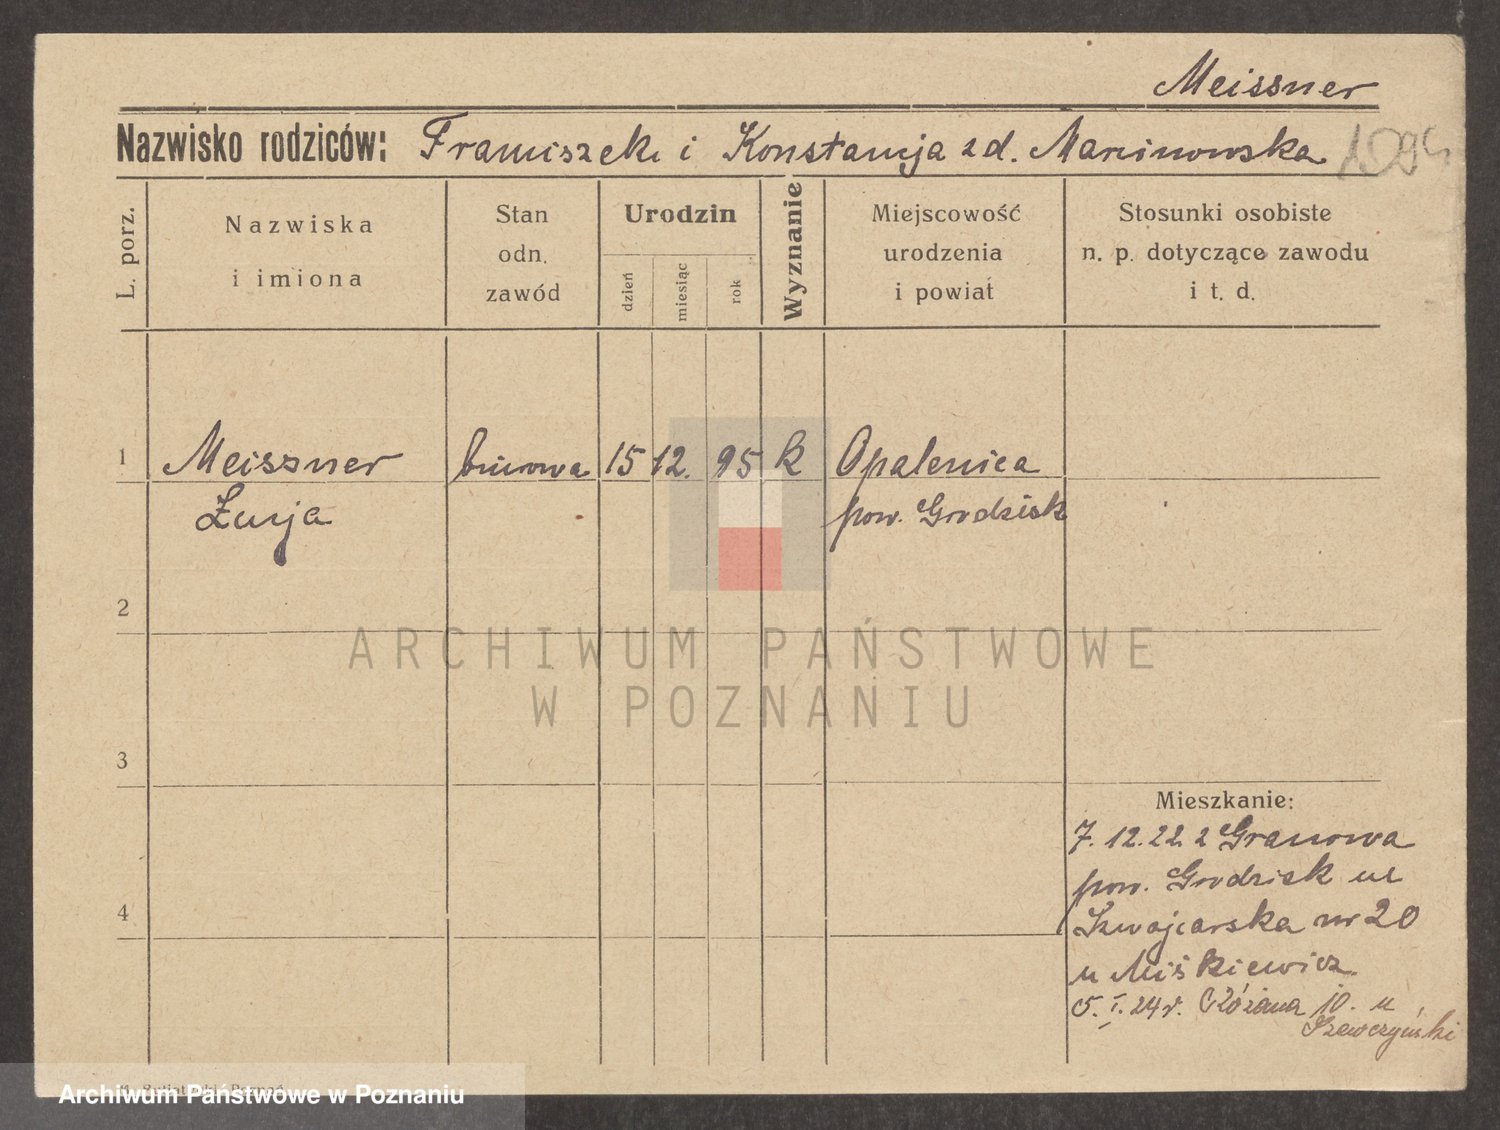 Meissner
Nazwisko rodziców: Franciszek i Konstancja zd. Marcinowska
L. porz.
Nazwiska
i imiona
Stan
odn.
zawód
Urodzin
dzień
miesiąc
rok
Wyznanie
Miejscowość
urodzenia
i powiat
Stosunki osobiste
n. p. dotyczące zawodu
i t. d.
1 Meissner biurowa 15 12. 95 k Opalenica
Łucja pow. Grodzisk
2
ARCHIWUM PAŃSTWOWE
W POZNANIU
3
Mieszkanie:
7. 12. 22 z Granowa
pow. Grodzisk
4
Szwajcarska nr 20
u Miśkiewicz
5. I. 24 r. Różana 10. u
Szewczyński
Archiwum Państwowe w Poznaniu